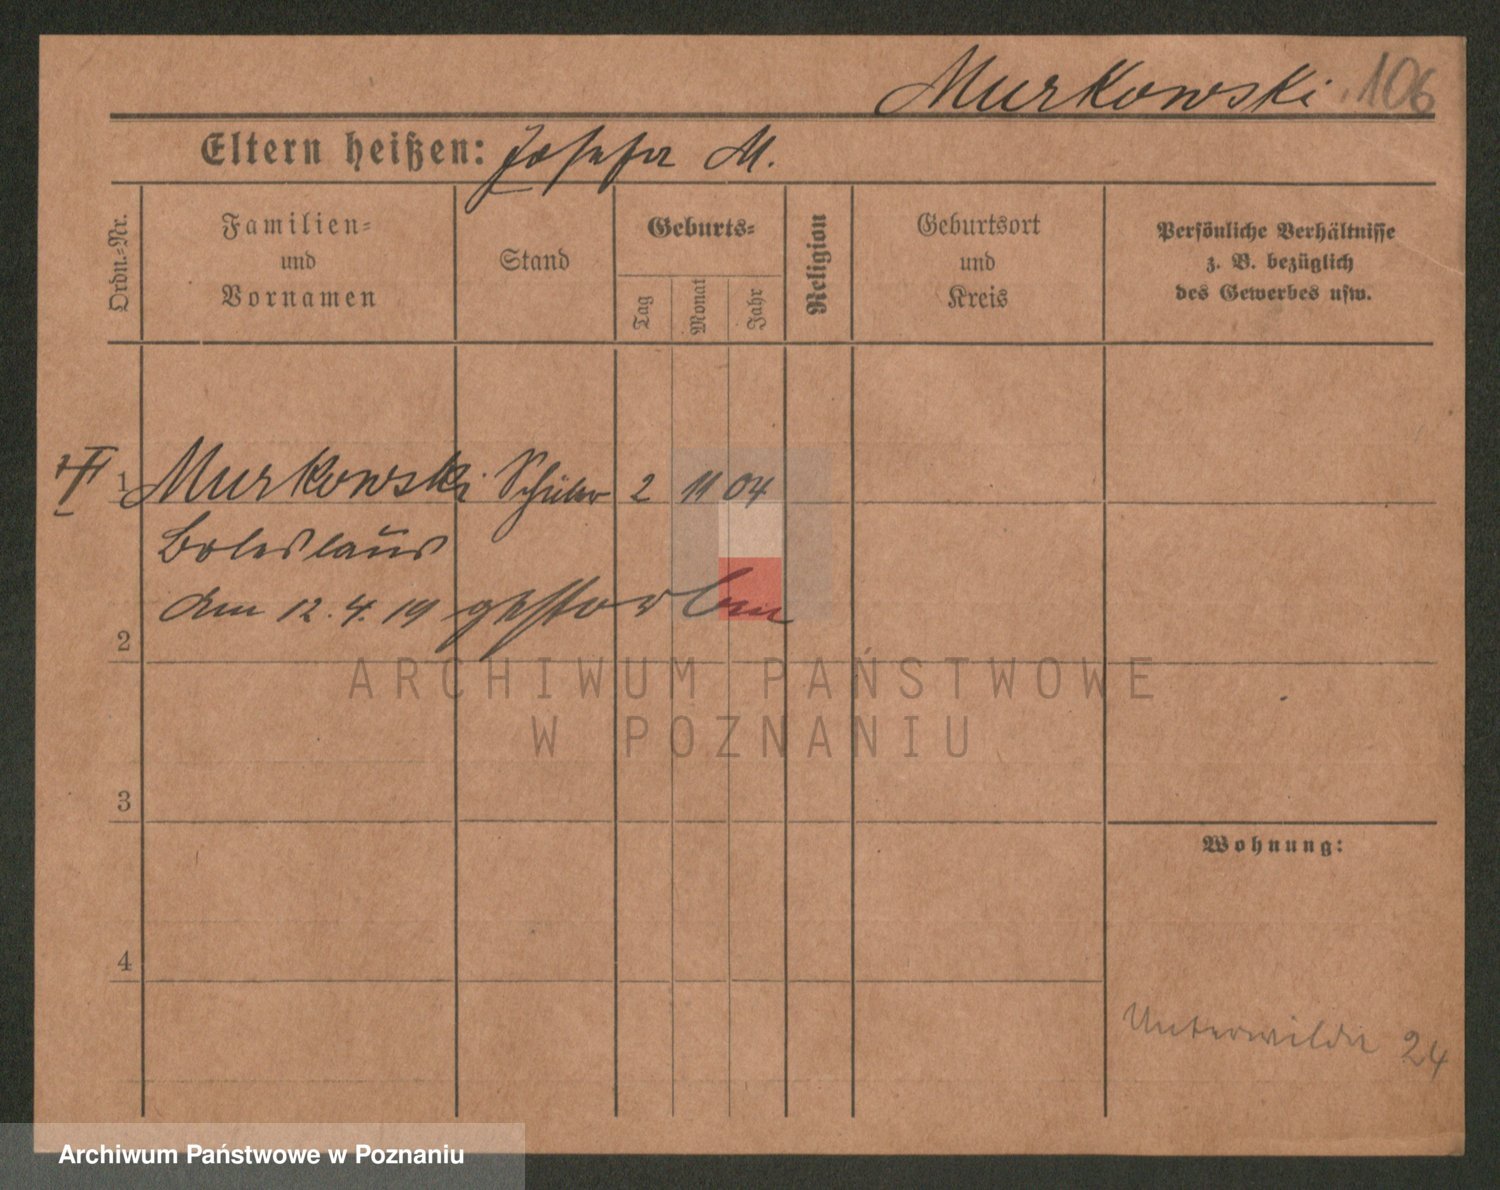 Murkowski. 106
Eltern heißen: Josefa M.
Ordn.-Nr.
Familien- und Vornamen
Stand
Geburts-
Tag
Monat
Jahr
Religion
Geburtsort und Kreis
Persönliche Verhältnisse
z. B. bezüglich
des Gewerbes usw.
1 Murkowski Schüler 2 11 04
Boleslaus
am 12.4.19 gestorben
2
ARCHIWUM PAŃSTWOWE
W POZNANIU
3
Wohnung:
4
Unterwilda 24
Archiwum Państwowe w Poznaniu